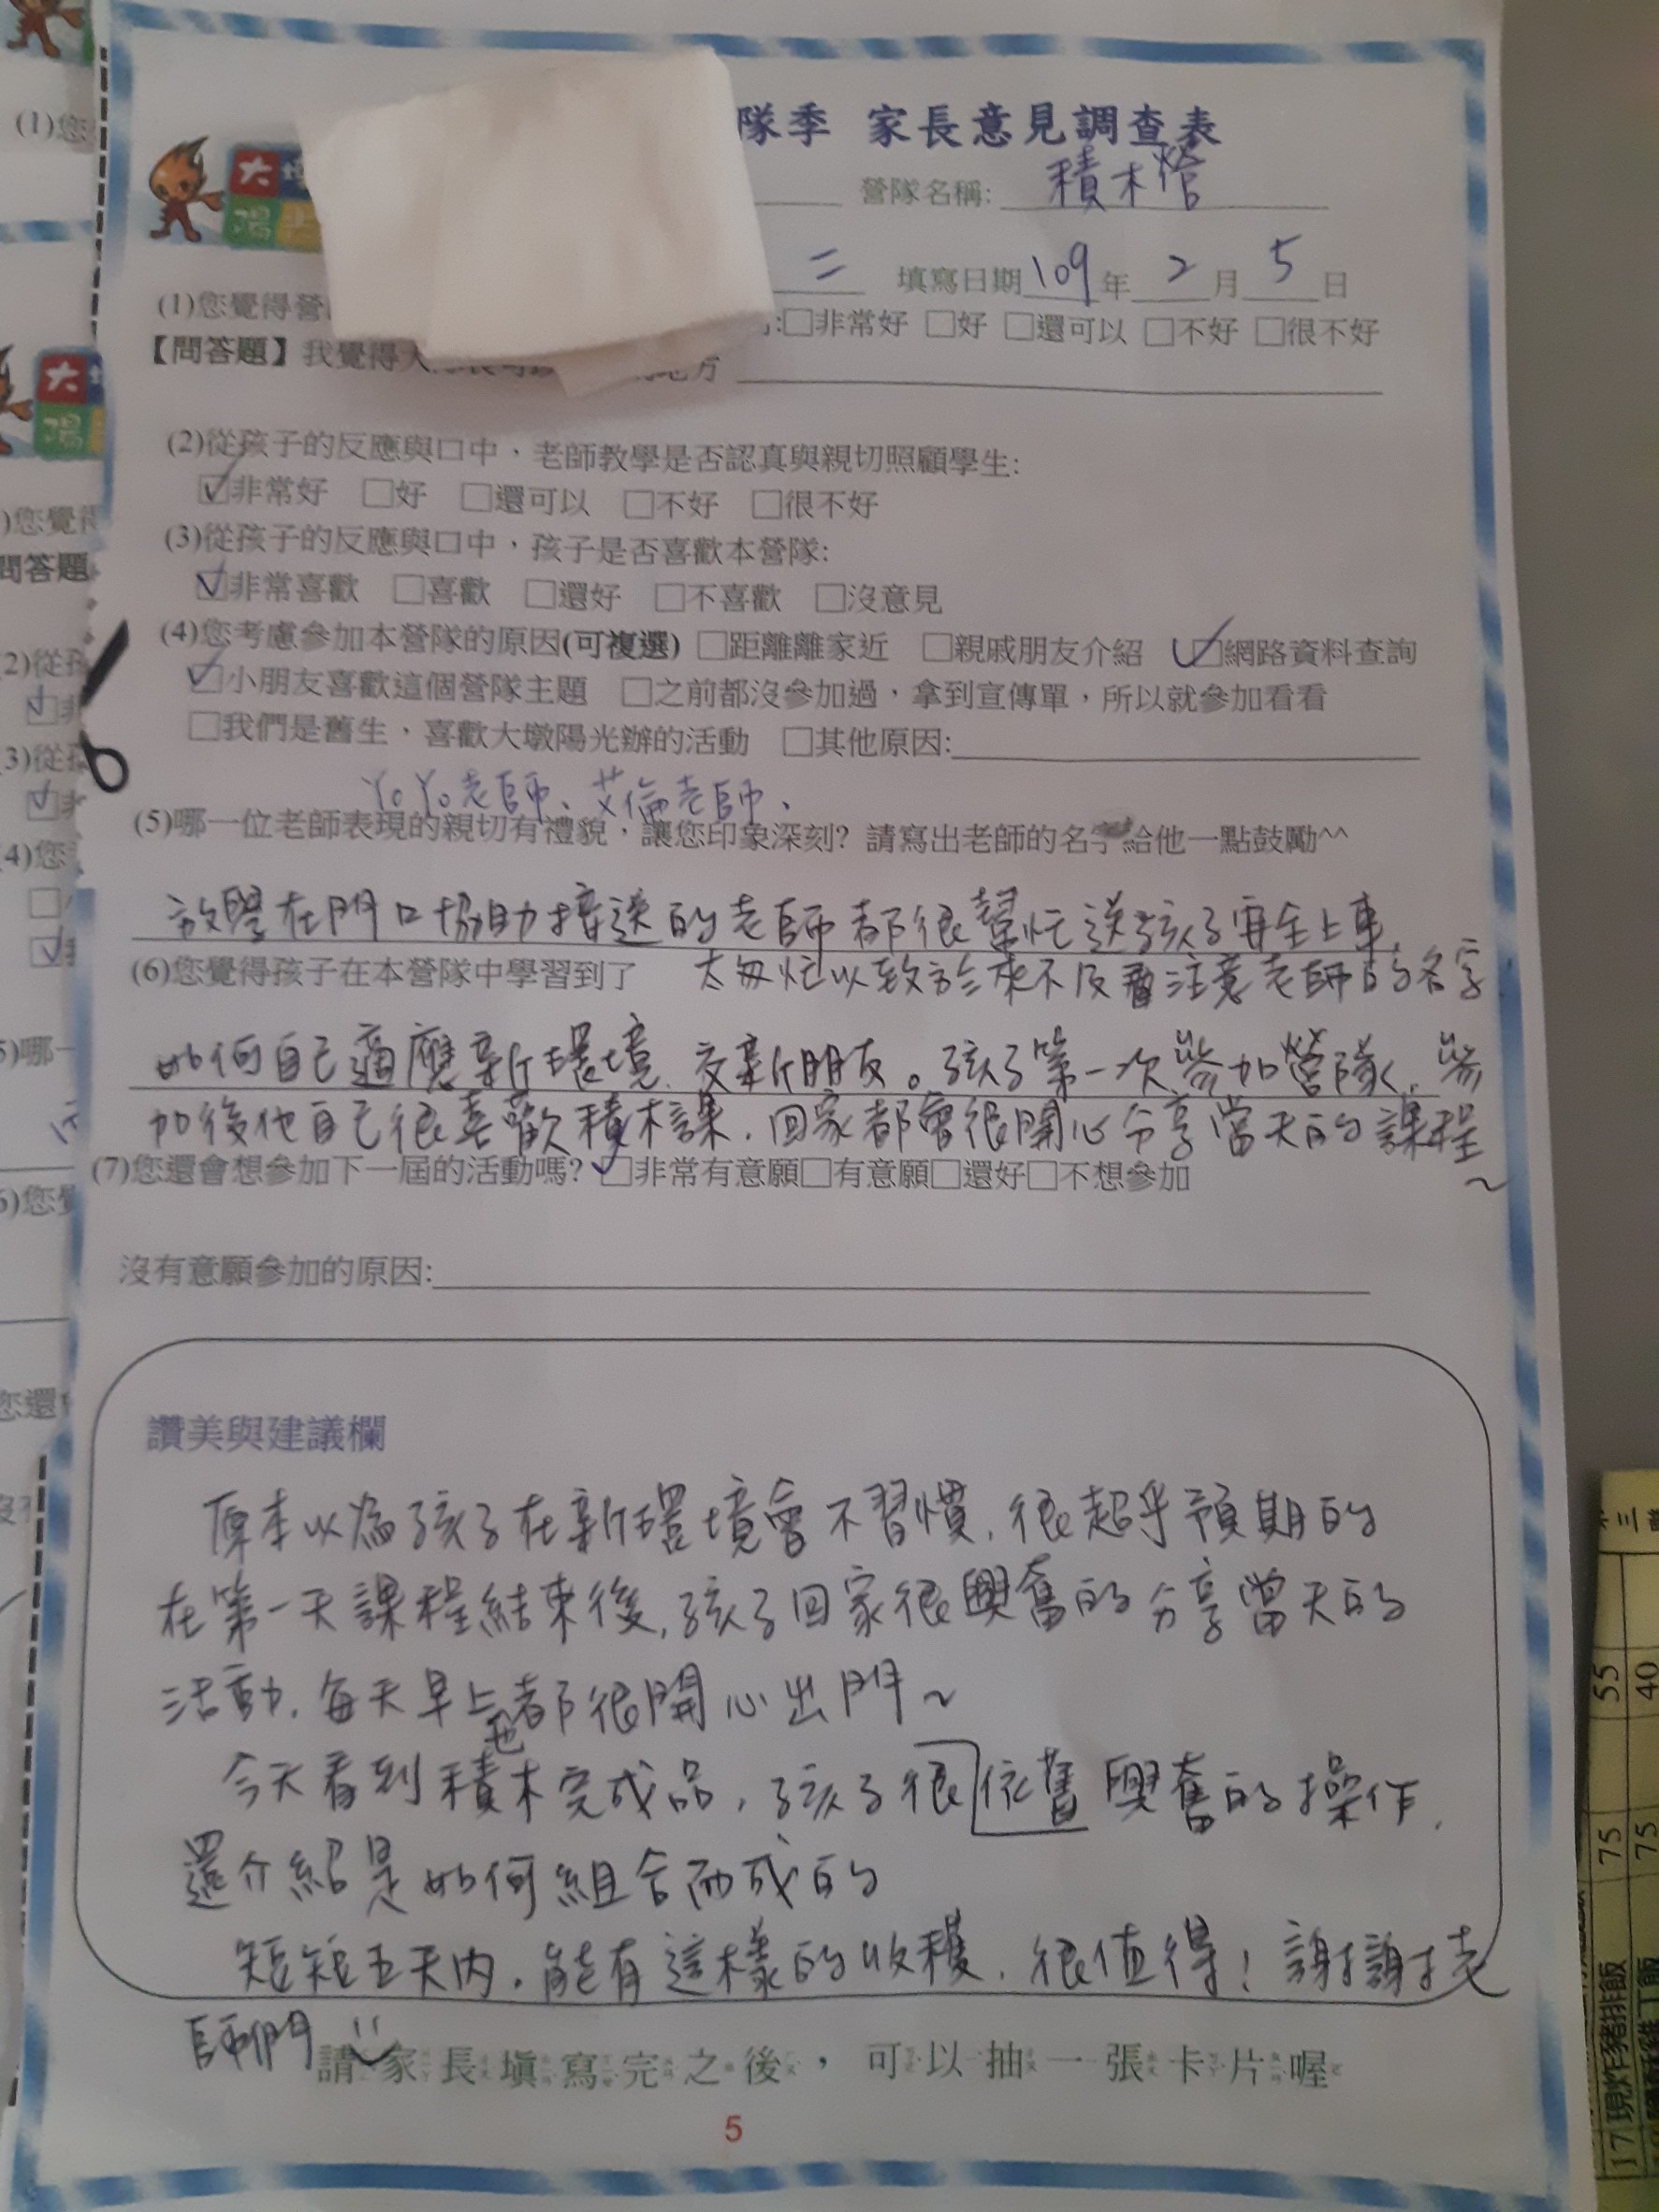 隊季 家長意見調查表
營隊名稱: 積木營
二 填寫日期 109 年 2 月 5 日
(1)您覺得營
:□非常好 □好 □還可以 □不好 □很不好
【問答題】我覺得大
地方
(2)從孩子的反應與口中，老師教學是否認真與親切照顧學生:
☑非常好 □好 □還可以 □不好 □很不好
(3)從孩子的反應與口中，孩子是否喜歡本營隊:
☑非常喜歡 □喜歡 □還好 □不喜歡 □沒意見
(4)您考慮參加本營隊的原因(可複選) □距離離家近 □親戚朋友介紹 ☑網路資料查詢
☑小朋友喜歡這個營隊主題 □之前都沒參加過，拿到宣傳單，所以就參加看看
□我們是舊生，喜歡大墩陽光辦的活動 □其他原因:
YoYo老師、艾倫老師、
(5)哪一位老師表現的親切有禮貌，讓您印象深刻? 請寫出老師的名字給他一點鼓勵^^
放學在門口協助接送的老師都很幫忙送孩子安全上車,
(6)您覺得孩子在本營隊中學習到了 太匆忙以致於來不及注意老師的名字
如何自己適應新環境, 交新朋友。孩子第一次參加營隊, 參
加後他自己很喜歡積木課, 回家都會很開心分享當天的課程~
(7)您還會想參加下一屆的活動嗎? ☑非常有意願□有意願□還好□不想參加
沒有意願參加的原因:
讚美與建議欄
原本以為孩子在新環境會不習慣, 很超乎預期的
在第一天課程結束後, 孩子回家很興奮的分享當天的
活動, 每天早上也都很開心出門~
今天看到積木完成品, 孩子很依舊興奮的操作,
還介紹是如何組合而成的
短短五天內, 能有這樣的收穫, 很值得! 謝謝老
師們
請家長填寫完之後，可以抽一張卡片喔
5
大
陽
(1)您
大
陽
您覺得
問答題
(2)從孩
(3)從孩
(4)您
哪一
您還
55
40
75
75
17 現炸豬排飯